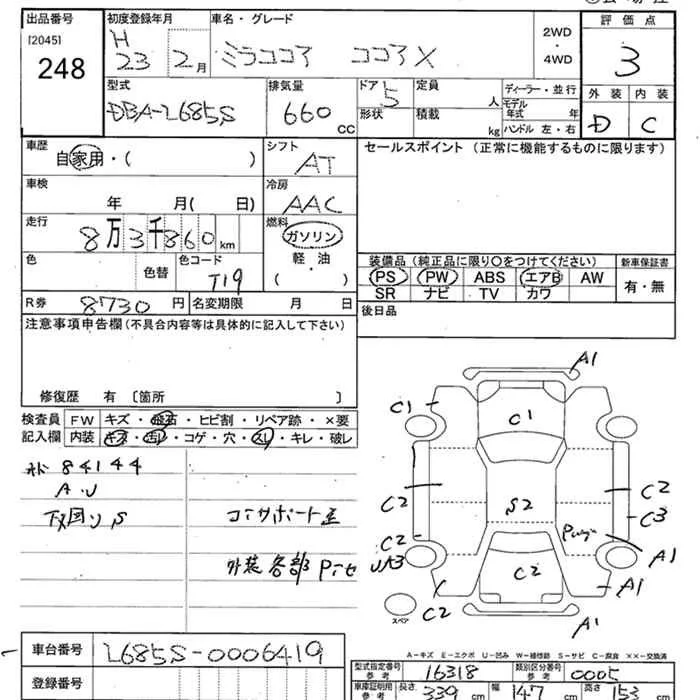 出品番号 初度登録年月 車名・グレード 評価点
[2045] 248
H 23 2月
ミラココア ココアX
2WD・4WD
3
型式 排気量 ドア 定員 ディーラー・並行 外装 内装
DBA-L685S 660 CC 5 人 モデル年式 年
形状 積載 kg ハンドル 左・右 D C
車歴 シフト セールスポイント (正常に機能するものに限ります)
自家用・( ) AT
車検 冷房
年 月( 日) AAC
走行 燃料
8万3千860km ガソリン
軽・油
( )
色 色替 色コード T19
装備品 (純正品に限り○をつけてください) 新車保証書
PS PW ABS エアB AW 有・無
SR ナビ TV カワ
R券 8730円 名変期限 月 日 後日品
注意事項申告欄 (不具合内容等は具体的に記入して下さい)
修復歴 有 〔箇所 〕
検査員 FW キズ・飛石・ヒビ割・リペア跡・×要
記入欄 内装 キズ・汚レ・コゲ・穴・スレ・キレ・破レ
84144
A.U
下回りS
コアサポート歪
外装各部Pニセ
A1
C1 C1
C2 S2 C2
C3
C2 A1
UA3 C2 A1
C2 A1
スペア
A-キズ E-エクボ U-凹み W-補修跡 S-サビ C-腐食 ××-交換済
車台番号 L685S-0006419
登録番号
型式指定番号 参考 16318 類別区分番号 参考 0005
車庫証明用 参考 長さ 339cm 幅 147cm 高さ 153cm